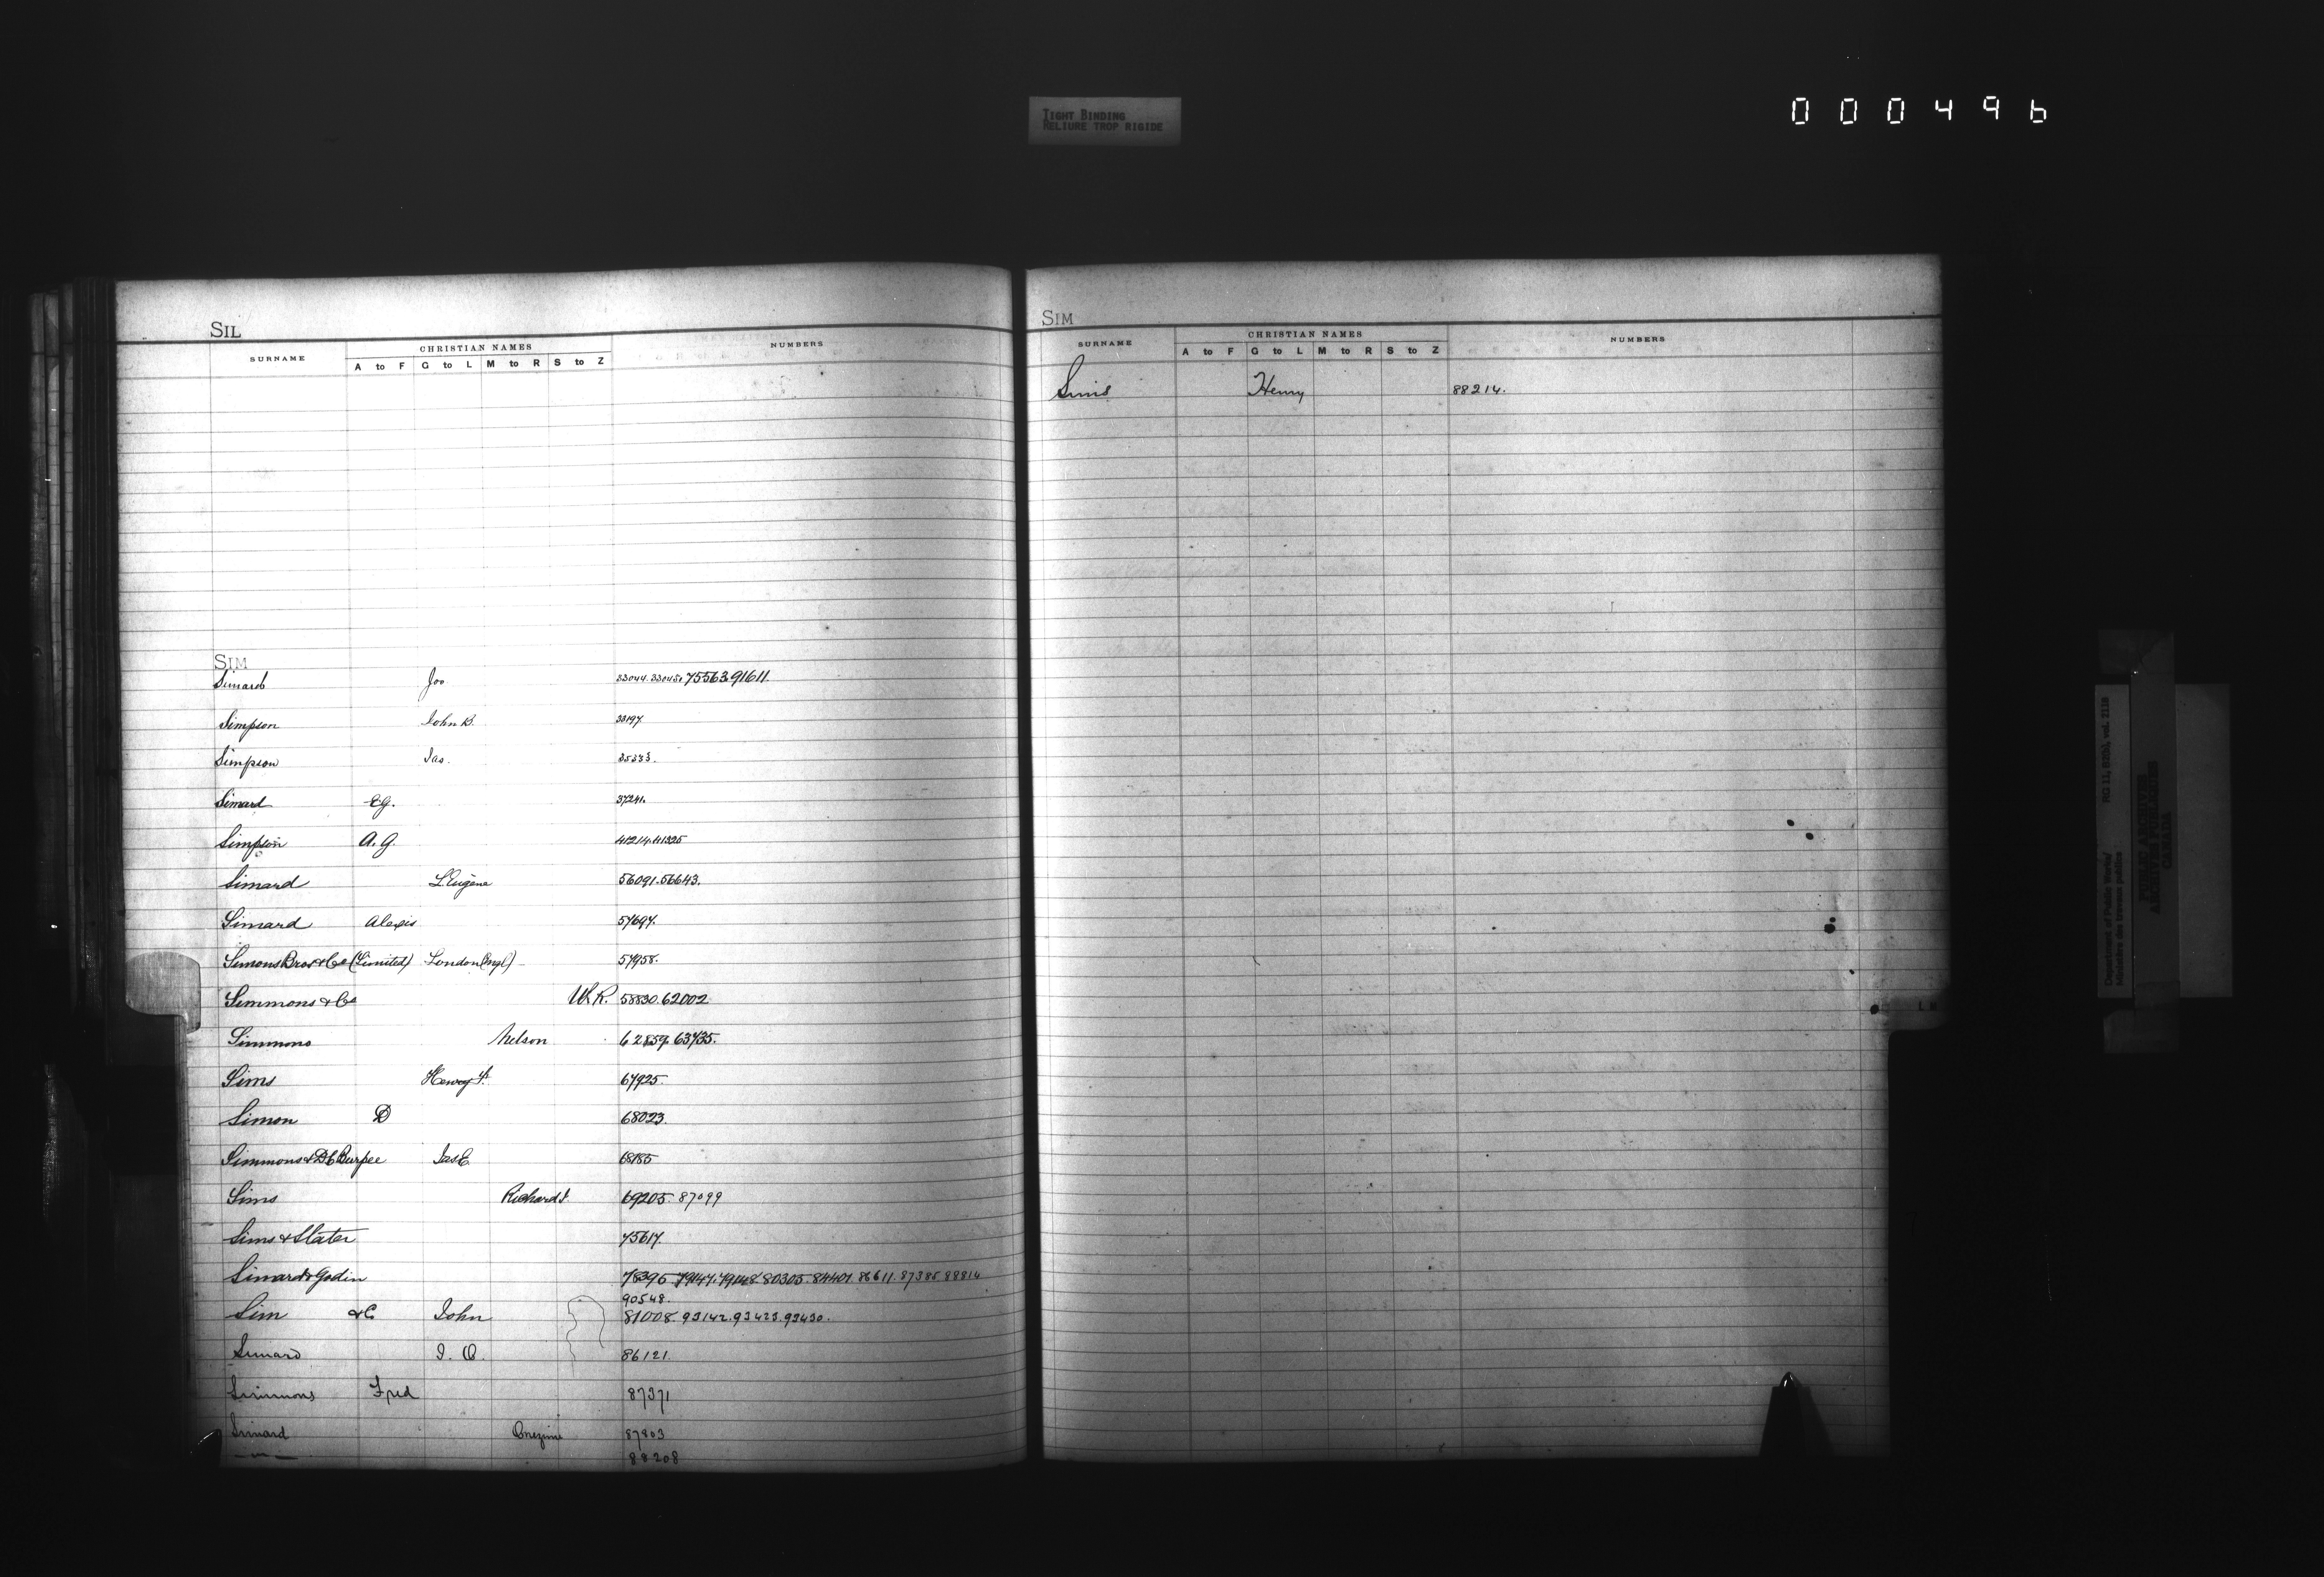 TIGHT BINDING
RELIURE TROP RIGIDE
000496
SIL
SURNAME CHRISTIAN NAMES NUMBERS
A to F G to L M to R S to Z
SIM
Simard Jos 33044. 33045. 75563. 91611.
Simpson John B. 33197.
Simpson Jas. 35333.
Simard E.G. 37241.
Simpson A. G. 41214. 41325
Simard L. Eugène 56091. 56643.
Simard Alexis 57697.
Simons Bros & Co (Limited) London (Engl) 57958.
Simmons & Co W. R. 58830. 62002
Simmons Nelson 62859. 63735.
Sims 67925.
Simon D 68023.
Simmons & D C Burpee Jas E. 68185
Sims Richard J. 69205. 87099
Sims & Slater 75617.
Simard & Godin 78395. 79147. 79148. 80305. 84401. 86611. 87385. 88814
90548.
Sim & C John 81008. 93142. 93423. 93430.
Simard J. O. 86121.
Simmons Fred 87371
Simard Onezime 87803
— " — 88208
SIM
SURNAME CHRISTIAN NAMES NUMBERS
A to F G to L M to R S to Z
Sims Henry 88214.
L M
Department of Public Works/
Ministère des travaux publics
RG 11, B2(b), vol. 2118
PUBLIC ARCHIVES
ARCHIVES PUBLIQUES
CANADA